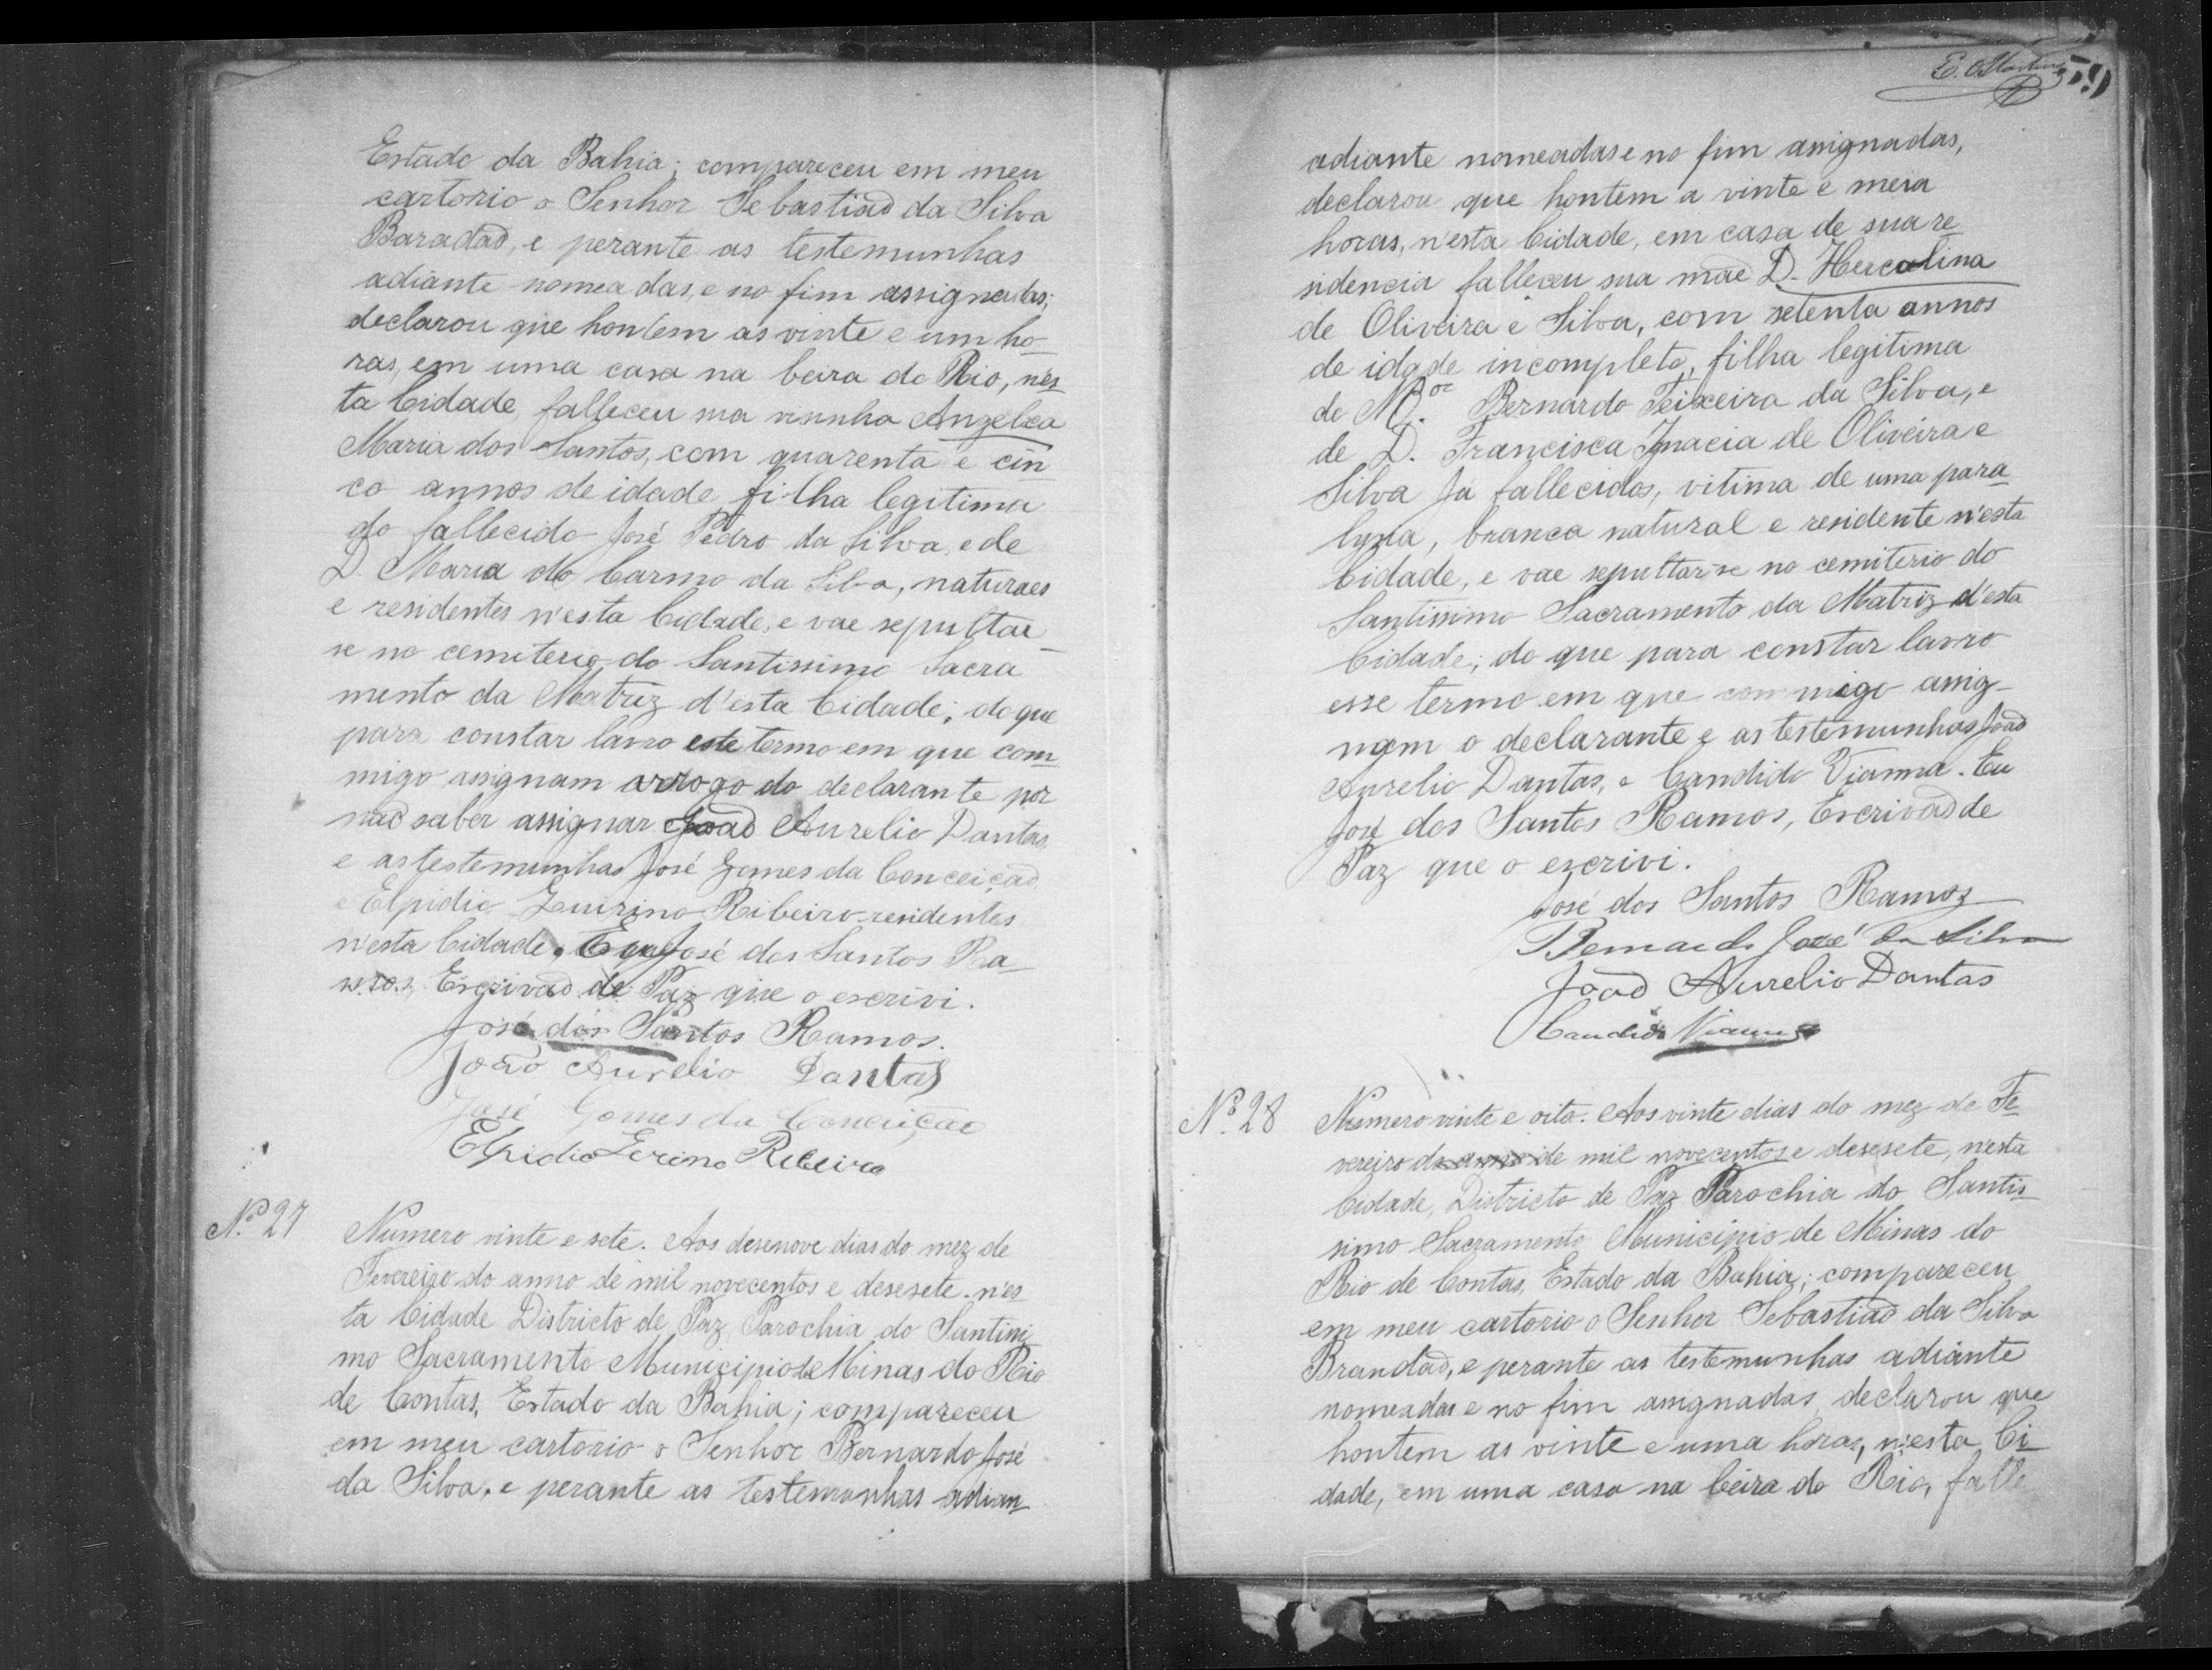 Estado da Bahia; compareceu em meu
cartorio o Senhor Sebastiaõ da Silva
Baradaõ, e perante as testemunhas
adiante nomeadas, e no fim assignadas;
declarou que hontem as vinte e um ho-
ras, em uma casa na beira do Rio, n'es-
ta Cidade, falleceu sua visinha Angelica
Maria dos Santos, com quarenta e cin-
co annos de idade filha legitima
do fallecido José Pedro da Silva, e de
D. Maria do Carmo da Silva, naturaes
e residentes n'esta Cidade, e vae sepultar-
se no cemiterio do Santissimo Sacra
mento da Matriz d'esta Cidade; do que
para constar lavro este termo em que com
migo assignam arrogo do declarante por
naõ saber assignar Joaõ Aurelio Dantas,
e as testemunhas José Gomes da Conceiçaõ
e Elpidio Zeurino Ribeiro residentes
n'esta Cidade. Eu José dos Santos Ra-
mos, Escrivaõ de Paz que o escrivi.
José dos Santos Ramos.
Joaõ Aurelio Dantas
José Gomes da Conceição
Elpidio Zerino Ribeiro
Nº. 27
Numero vinte e sete. Aos desenove dias do mez de
Fevereiro do anno de mil novecentos e desesete. n'es-
ta Cidade Districto de Paz, Parochia do Santissi
mo Sacramento Municipio de Minas do Rio
de Contas, Estado da Bahia; compareceu
em meu cartorio o Senhor Bernardo José
da Silva, e perante as testemunhas adian
E. Martins 59
adiante nomeadas e no fim assignadas,
declarou que hontem a vinte e meia
horas, n'esta Cidade, em casa de sua re
sidencia falleceu sua maẽ D. Hercolina
de Oliveira e Silva, com setenta annos
de idade incompleto, filha legitima
de Bernardo Teixeira da Silva, e
de D. Francisca Ignacia de Oliveira e
Silva já fallecidos, vitima de uma para
lyzia, branca natural e residente n'esta
Cidade, e vae sepultar-se no cemiterio do
Santissimo Sacramento da Matriz d'esta
Cidade; do que para constar lavro
esse termo em que commigo assig-
nam o declarante e as testemunhas Joaõ
Aurelio Dantas, e Candido Vianna. Eu
José dos Santos Ramos, Escrivaõ de
Paz que o escrivi.
José dos Santos Ramos
Bernardo José da Silva
Joaõ Aurelio Dantas
Candido Vianna
Nº. 28
Numero vinte e oito. Aos vinte dias do mez de Fe-
vereiro do anno de mil novecentos e desesete, n'esta
Cidade, Districto de Paz Parochia do Santis-
simo Sacramento Municipio de Minas do
Rio de Contas, Estado da Bahia; compareceu
em meu cartorio o Senhor Sebastiaõ da Silva
Brandaõ, e perante as testemunhas adiante
nomeadas e no fim assignadas, declarou que
hontem as vinte e uma horas, n'esta Ci-
dade, em uma casa na beira do Rio, falle